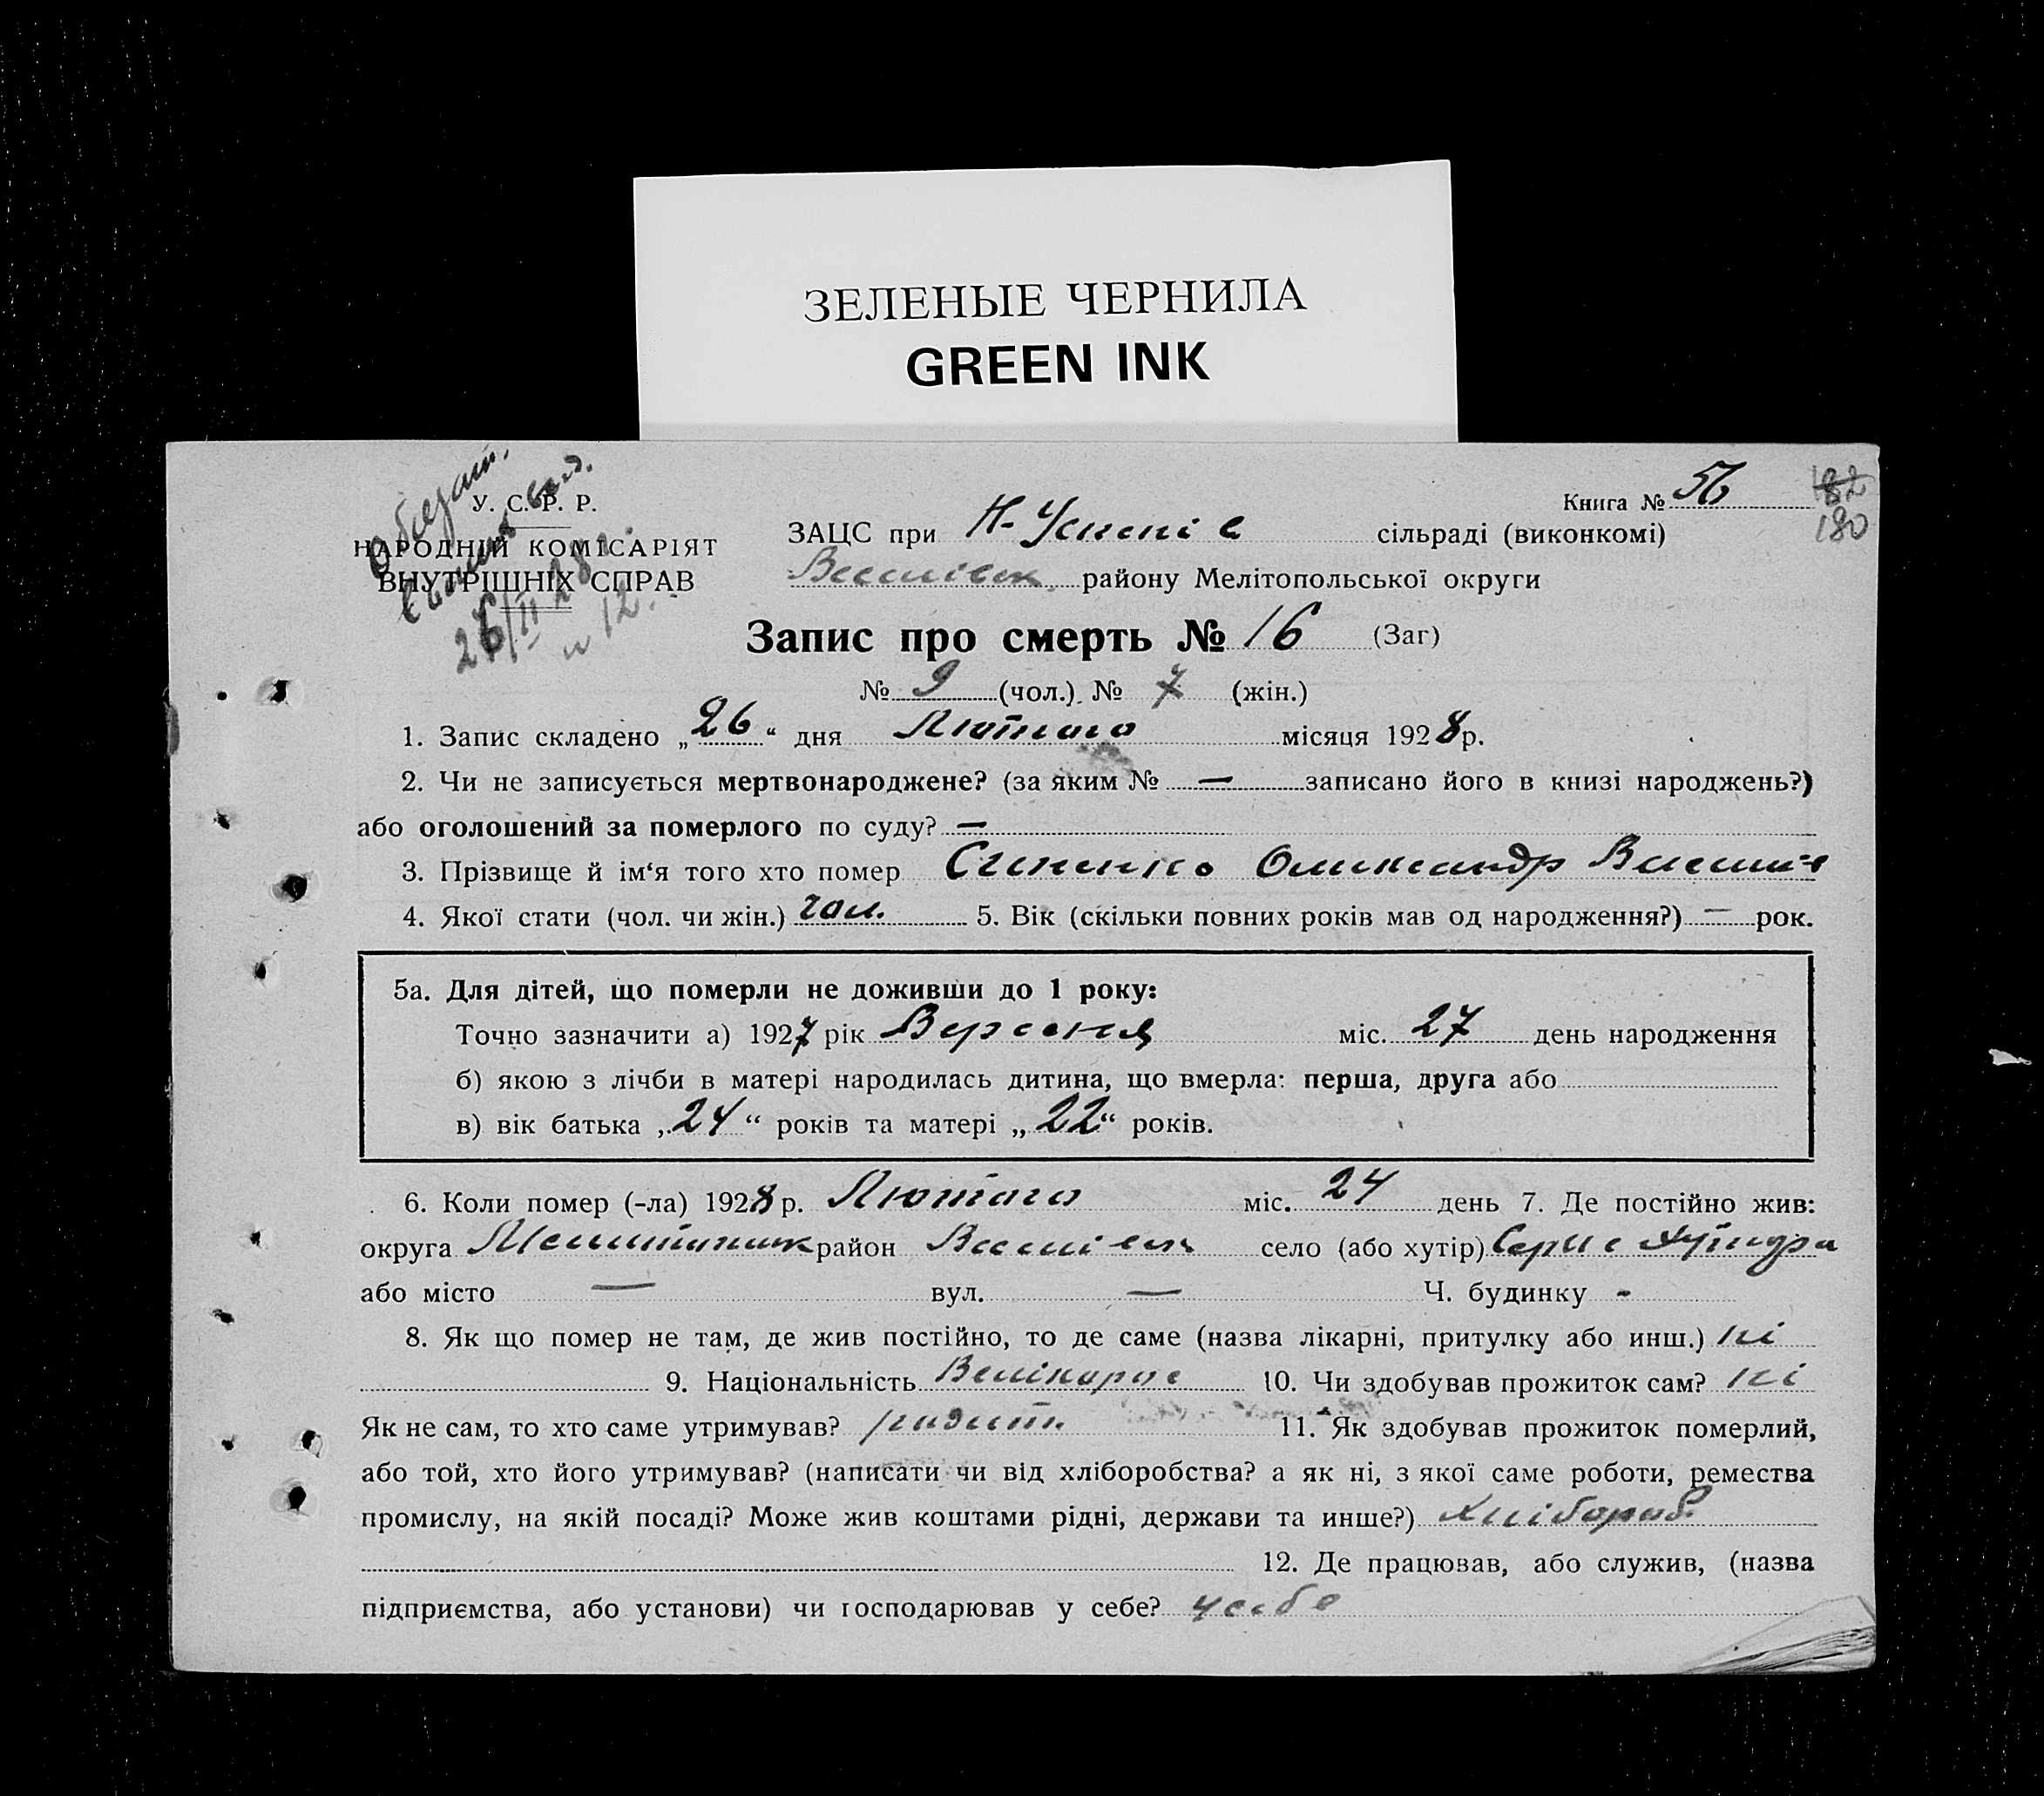 ЗЕЛЕНЫЕ ЧЕРНИЛА
GREEN INK
У. С. Р. Р.
НАРОДНІЙ КОМІСАРІЯТ
ВНУТРІШНІХ СПРАВ
Книга № 56
182
180
ЗАЦС при Н-Успенів сільраді (виконкомі)
Веселівск району Мелітопольської округи
Запис про смерть № 16 (Заг)
№ 9 (чол.) № 7 (жін.)
1. Запис складено „26“ дня Лютого місяця 1928 р.
2. Чи не записується мертвонароджене? (за яким № — записано його в книзі народжень?)
або оголошений за померлого по суду? —
3. Прізвище й ім‘я того хто помер Олександр
4. Якої стати (чол. чи жін.) чол. 5. Вік (скільки повних років мав од народження?) — рок.
5а. Для дітей, що померли не доживши до 1 року:
Точно зазначити а) 1927 рік Вересня міс. 27 день народження
б) якою з лічби в матері народилась дитина, що вмерла: перша, друга або
в) вік батька „24“ років та матері „22“ років.
6. Коли помер (-ла) 1928 р. Лютого міс. 24 день 7. Де постійно жив:
округа Мелитопольск район Веселівськ село (або хутір)
або місто — вул. — Ч. будинку -
8. Як що помер не там, де жив постійно, то де саме (назва лікарні, притулку або инш.) ні
9. Національність Велікорос 10. Чи здобував прожиток сам? ні
Як не сам, то хто саме утримував? родит. 11. Як здобував прожиток померлий,
або той, хто його утримував? (написати чи від хліборобства? а як ні, з якої саме роботи, ремества
промислу, на якій посаді? Може жив коштами рідні, держави та инше?) хлібороб.
12. Де працював, або служив, (назва
підприємства, або установи) чи господарював у себе? у себе